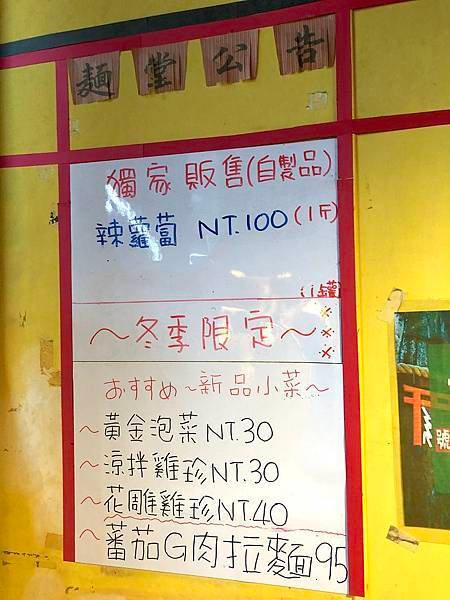 告公堂麵
獨家販售(自製品)
辣蘿蔔 NT.100(1斤)
(1罐)
～冬季限定～
おすすめ～新品小菜～
～黃金泡菜NT.30
～涼拌雞珍NT.30
～花雕雞珍NT.40
～蕃茄G肉拉麵95
號